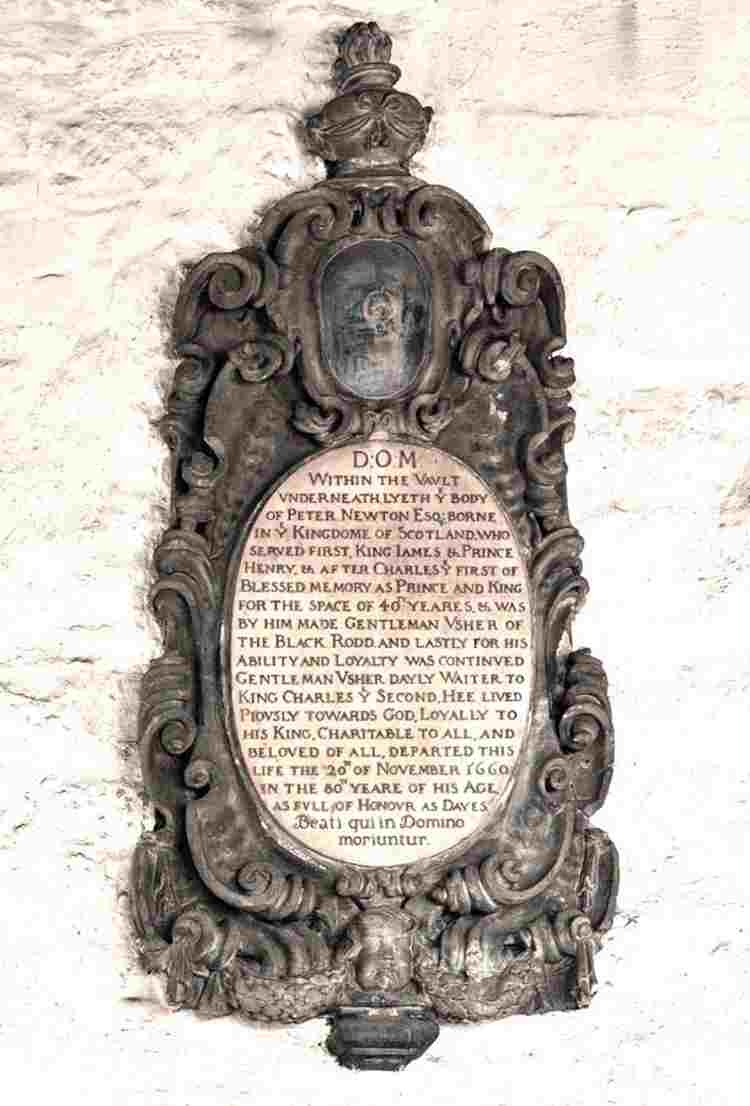 D:O:M
WITHIN THE VAVLT
VNDERNEATH LYETH Yͤ BODY
OF PETER NEWTON ESQ; BORNE
IN Yͤ KINGDOME OF SCOTLAND, WHO
SERVED FIRST, KING IAMES & PRINCE
HENRY, & AFTER CHARLES Yͤ FIRST OF
BLESSED MEMORY AS PRINCE AND KING
FOR THE SPACE OF 40ᵗʸ YEARES, & WAS
BY HIM MADE GENTLEMAN VSHER OF
THE BLACK RODD. AND LASTLY FOR HIS
ABILITY AND LOYALTY WAS CONTINVED
GENTLEMAN VSHER DAYLY WAITER TO
KING CHARLES Yͤ SECOND, HEE LIVED
PIOVSLY TOWARDS GOD, LOYALLY TO
HIS KING, CHARITABLE TO ALL, AND
BELOVED OF ALL, DEPARTED THIS
LIFE THE 20ᵗʰ OF NOVEMBER 1660
IN THE 80ᵗʰ YEARE OF HIS AGE,
AS FVLL OF HONOVR AS DAYES.
Beati qui in Domino
moriuntur.